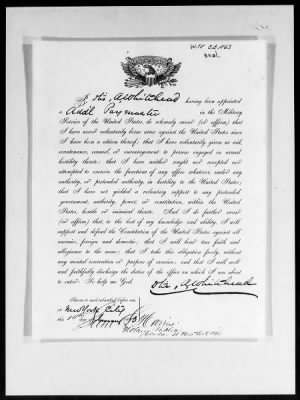 W.P. C.B. 1863
I, Otis A. Whitehead having been appointed
a Addl Paymaster in the Military
Service of the United States, do solemnly swear (or affirm) that
I have never voluntarily borne arms against the United States since
I have been a citizen thereof; that I have voluntarily given no aid,
countenance, counsel, or encouragement to persons engaged in armed
hostility thereto; that I have neither sought nor accepted nor
attempted to exercise the functions of any office whatever, under any
authority, or pretended authority, in hostility to the United States;
that I have not yielded a voluntary support to any pretended
government, authority, power, or constitution, within the United
States, hostile or inimical thereto. And I do further swear
(or affirm) that, to the best of my knowledge and ability, I will
support and defend the Constitution of the United States against all
enemies, foreign and domestic; that I will bear true faith and
allegiance to the same; that I take this obligation freely, without
any mental reservation or purpose of evasion; and that I will well
and faithfully discharge the duties of the office on which I am about
to enter: So help me God.
Otis A. Whitehead
Sworn to and subscribed before me,
at New York City
this
Harris
Notary Public
New York